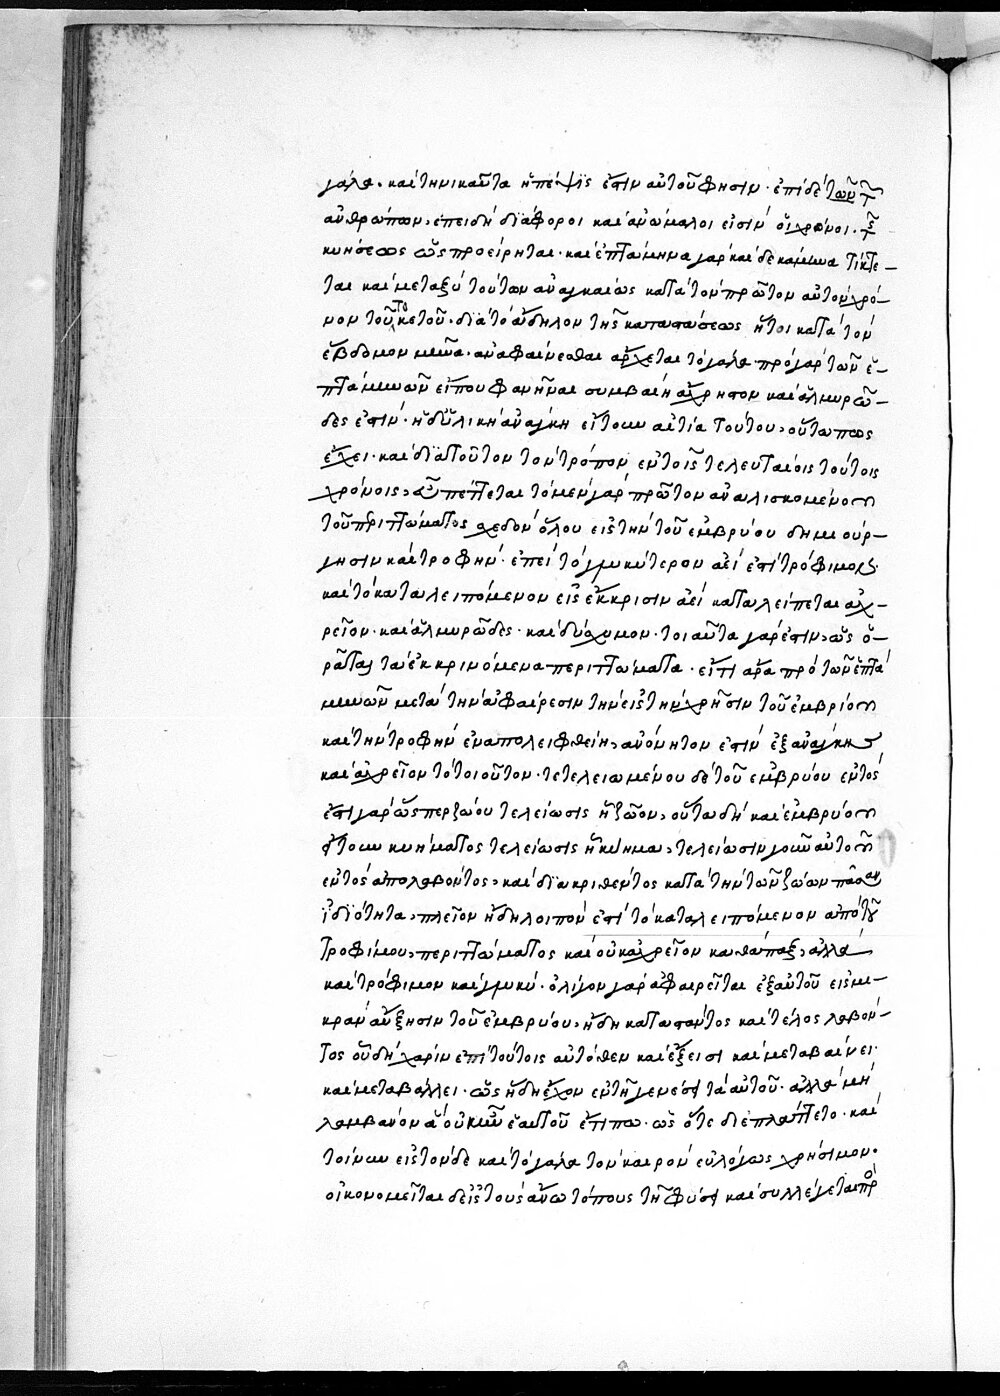 γάλα. καὶ τηνικαῦτα ἡ πέψις ἐστὶν αὐτοῦ φησιν. ἐπὶ δὲ τῶν
ἀνθρώπων, ἐπειδὴ διάφοροι καὶ ἀνώμαλοι εἰσὶν οἱ χρόνοι. τῆς
κυήσεως ὡς προείρηται. καὶ ἑπτάμηνα γὰρ καὶ δεκάμηνα τίκτε-
ται καὶ μεταξὺ τούτων ἀναγκαίως κατὰ τὸν πρῶτον αὐτὸν χρό-
νον τοῦ τόκου τοῦ. διὰ τὸ ἄδηλον τῆς καταπαύσεως ἤτοι κατὰ τὸν
ἕβδομον μῆνα. ἀναφαίνεσθαι ἄρχεται τὸ γάλα. πρὸ γὰρ τῶν ἑ-
πτὰ μηνῶν εἴπου φανῆναι συμβαίη ἄχρηστον καὶ ἁλμυρῶ-
δες ἐστίν. ἡ δ' ὑλικὴ ἀνάγκη εἴτουν αἰτία τούτου, οὕτω πως
ἔχει. καὶ διὰ τοῦτον τὸν τρόπον ἐν τοῖς τελευταίοις τούτοις
χρόνοις, πέττεται τὸ μὲν γὰρ πρῶτον ἀναλισκομένου
τοῦ περιττώματος σχεδὸν ὅλου εἰς τὴν τοῦ ἐμβρύου δημιουρ-
γησιν καὶ τροφήν. ἐπεὶ τὸ γλυκύτερον ἀεὶ ἐστὶ τρόφιμον.
καὶ τὸ καταλειπόμενον εἰς ἔκκρισιν ἀεὶ καταλείπεται ἀχ-
ρεῖον. καὶ ἁλμυρῶδες. καὶ δύσχυμον. τοιαῦτα γάρ ἐστιν, ὡς ὁ-
ρᾶται τὰ ἐκκρινόμενα περιττώματα. εἴτι ἄρα πρὸ τῶν ἑπτὰ
μηνῶν μετὰ τὴν ἀφαίρεσιν τὴν εἰς τὴν χρῆσιν τοῦ ἐμβρύου
καὶ τὴν τροφὴν ἐναπολειφθείη, ἀνόνητον ἐστὶν ἐξ ἀνάγκης
καὶ ἀχρεῖον τὸ τοιοῦτον. τετελειωμένου δὲ τοῦ ἐμβρύου ἐντὸς
ἔστι γὰρ ὥσπερ ζώου τελείωσις ἢ ζῶον, οὕτω δὴ καὶ ἐμβρύου
εἴτουν κυήματος τελείωσις ἢ κύημα, τελείωσιν γοῦν αὐτοῦ
ἐντὸς ἀπολαβόντος, καὶ διακριθέντος κατὰ τὴν τῶν ζώων πᾶσαν
ἰδιότητα, πλεῖον ἤδη λοιπὸν ἐστὶ τὸ καταλειπόμενον ἀπὸ τοῦ
τροφίμου, περιττώματος καὶ οὐκ ἀχρεῖον καθάπαξ, ἀλλὰ
καὶ τρόφιμον καὶ γλυκύ. ὀλίγον γὰρ ἀφαιρεῖται ἐξ αὐτοῦ εἰς μι-
κρὰν αὔξησιν τοῦ ἐμβρύου, ἤδη καταπαντος καὶ τέλος λαβόν-
τος οὗ δὴ χάριν ἐπὶ τούτοις αὐτόθεν καὶ ἔξεισι καὶ μεταβαίνει.
καὶ μεταβάλλει. ὡς ἤδη ἔχον ἐν τῇ γενέσει τὰ αὐτοῦ. ἀλλὰ μὴ
λαμβάνον ἃ οὐκ ἦν ἑαυτοῦ ἔτι πω. ὡς ὅτε διεπλάττετο. καὶ
τοίνυν εἰς τόνδε καὶ τὸ γάλα τὸν καιρὸν εὐλόγως χρήσιμον.
οἰκονομεῖται δ' εἰς τοὺς ἄνω τόπους τῇ φύσει καὶ συλλέγεται πρὸ